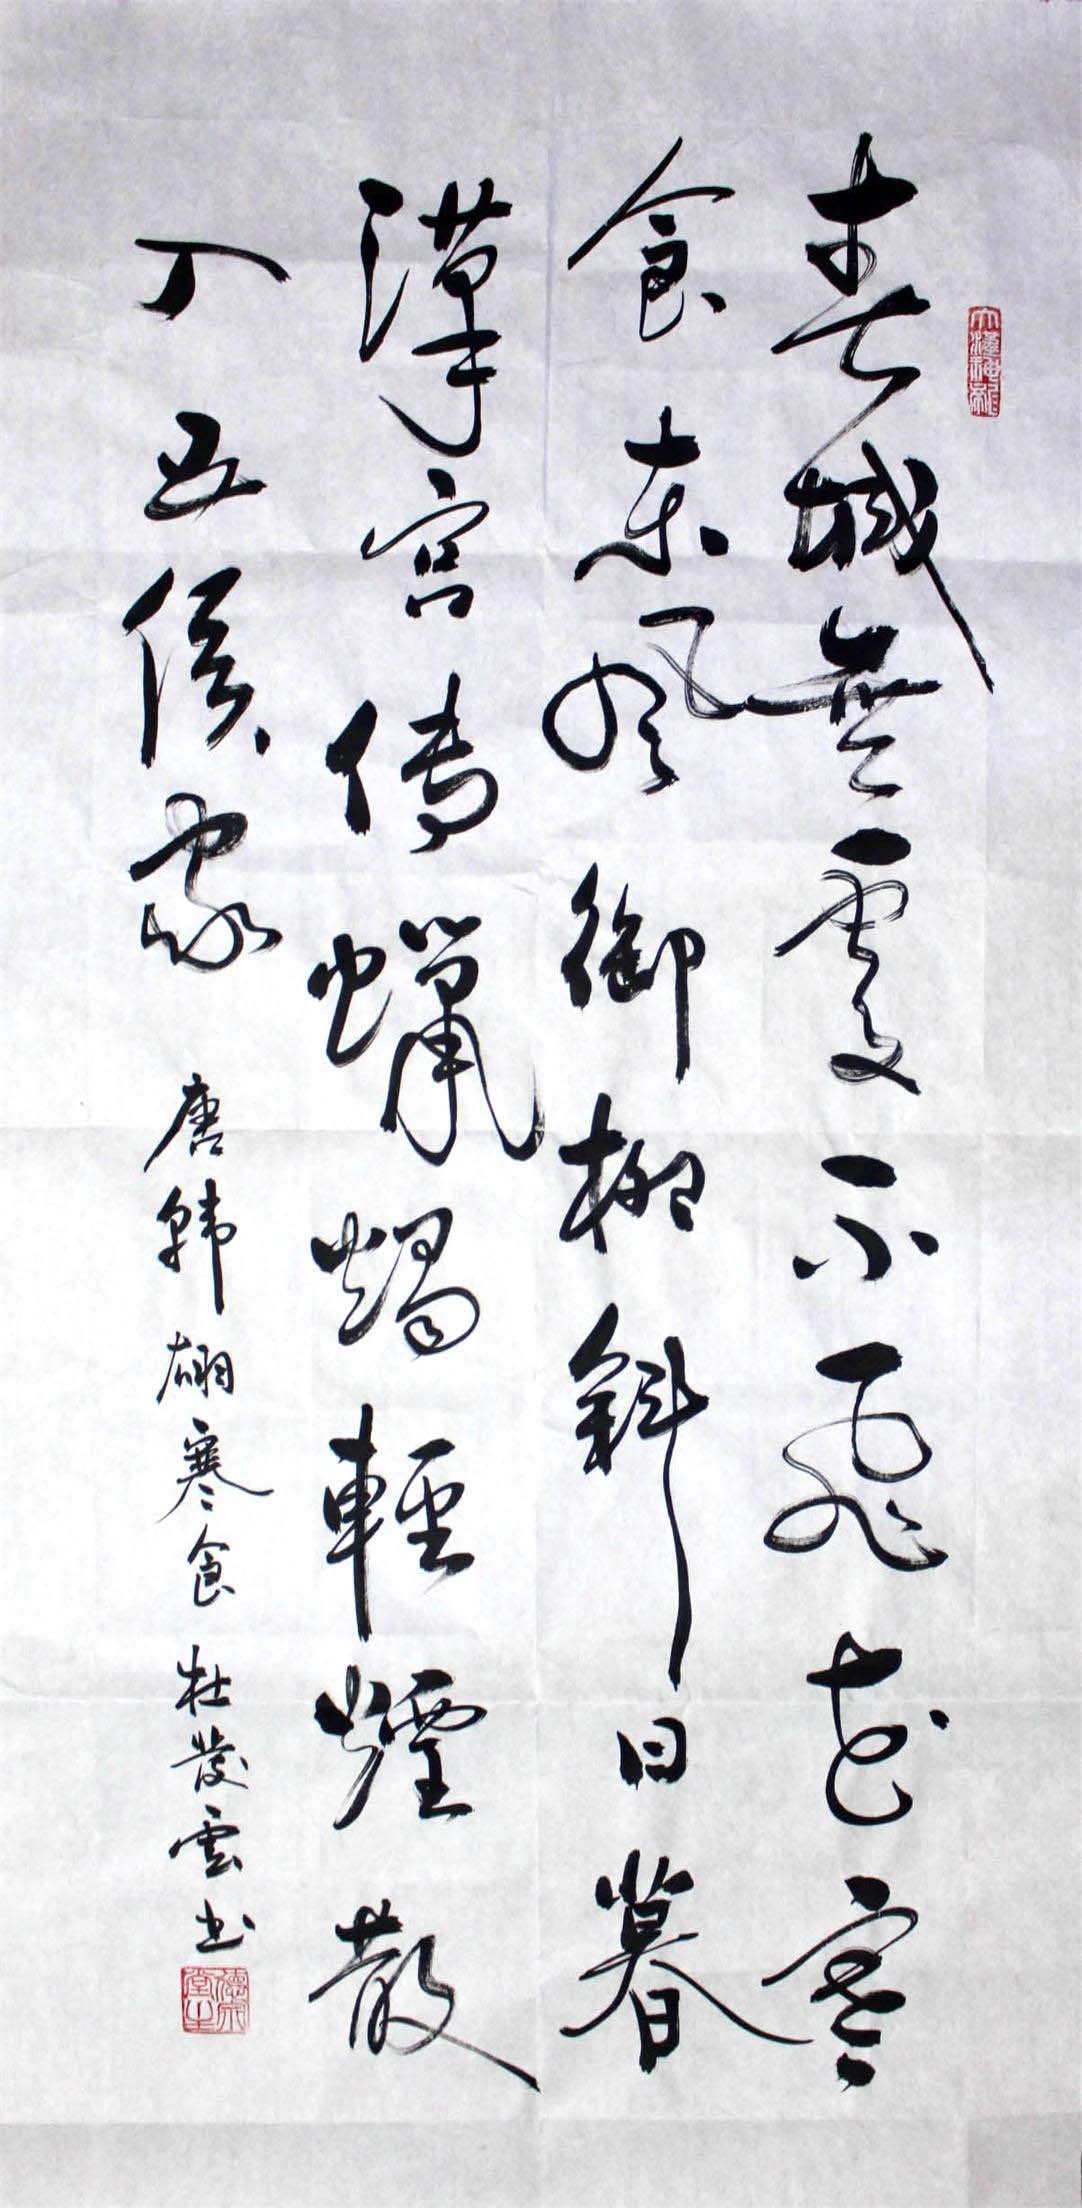 春城無處不飛花寒
食东風御柳斜日暮
漢宫傳蠟燭輕煙散
入五侯家 唐韩翃寒食 杜發雲书